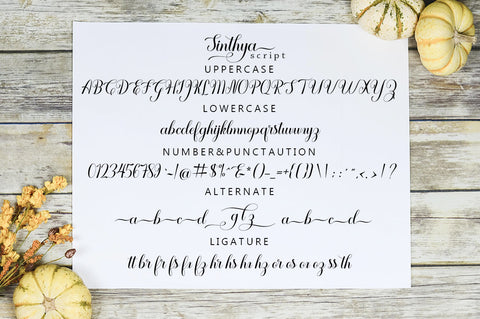 Sinthya
script
UPPERCASE
ABCDEFGHIJKLMNOPQRSTUVWXYZ
LOWERCASE
abcdefghijklmnopqrstuvwxyz
NUMBER&PUNCTAUTION
ALTERNATE
a b c d gfz a b c d
LIGATURE
tt br fr fs fi fz hr hs hi hz or os oi oz ss th